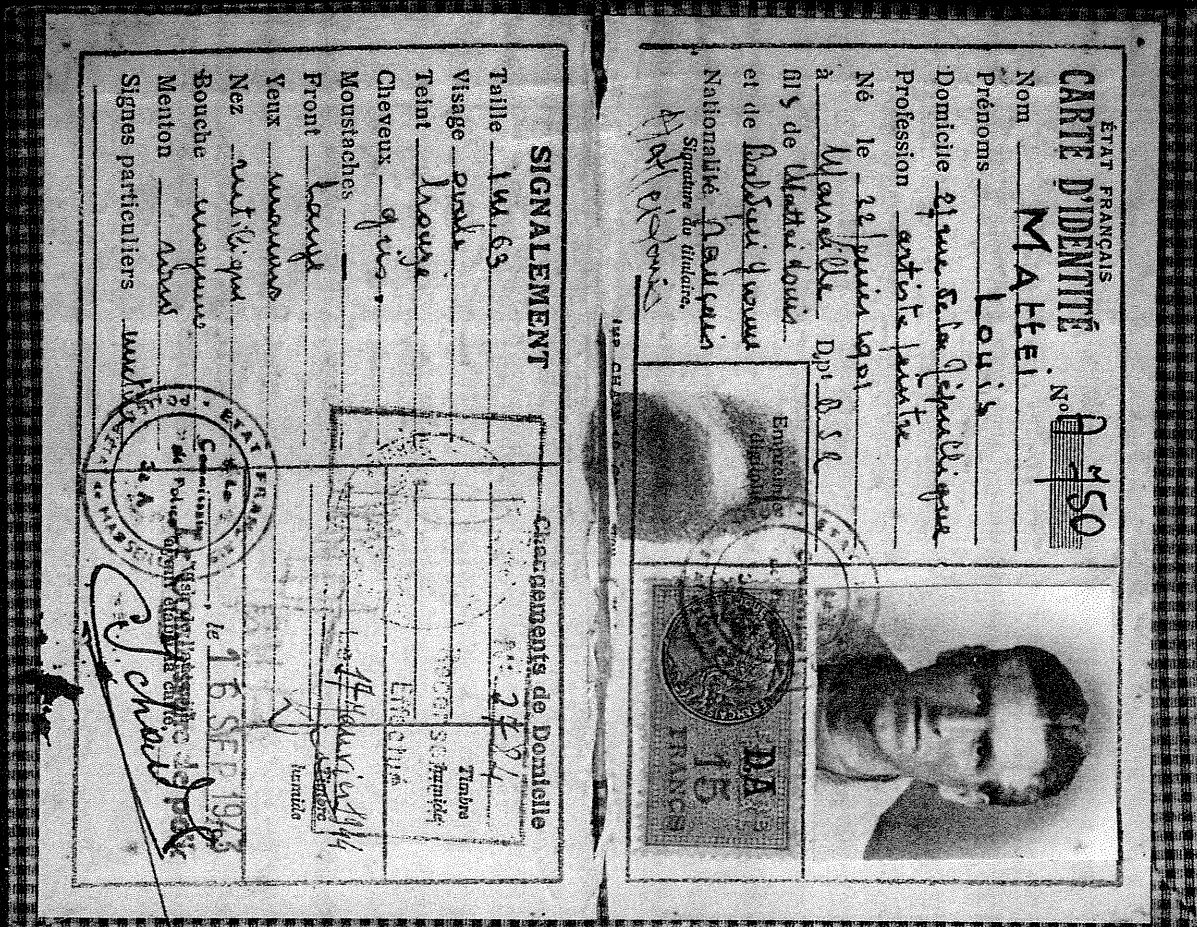 ÉTAT FRANÇAIS
CARTE D'IDENTITÉ
N° A 750
Nom MAttEi
Prénoms Louis
Domicile 21 rue de la République
Profession artiste peintre
Né le 22 juin 1901
à Marseille Dpt B d R
fils de Mattei Louis
et de
Nationalité Français
Signature du titulaire,
Mattei Louis
Empreintes digitales
ÉTAT
D.A
15
FRANCS
SIGNALEMENT
Taille 1m,63
Visage ovale
Teint
Cheveux gris.
Moustaches —
Front
Yeux marrons
Nez rectiligne
Bouche moyenne
Menton
Signes particuliers
Changements de Domicile
N° 2784
Timbre humide
Timbre humide
ETAT FRANÇAIS
Commissaire de Police
de MARSEILLE
, le 16 SEP 1943